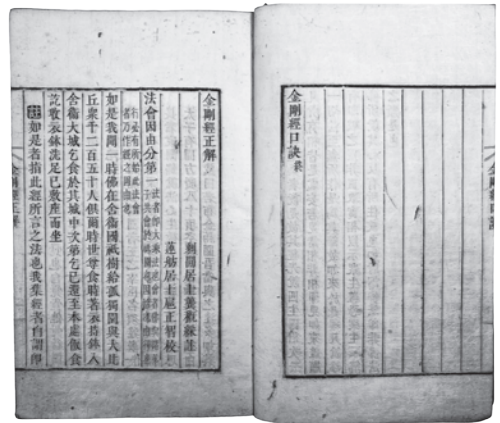 金剛經口訣終
金剛經正解
剩閒居士龔槪綵註
蓮舫居士扈正智校
法會因由分第一
如是我聞一時佛在舍衛國祇樹給孤獨園與大比
丘衆千二百五十人俱爾時世尊食時著衣持鉢入
舍衛大城乞食於其城中次第乞已還至本處飯食
訖收衣鉢洗足已敷座而坐
註如是者指此經所言之法也我集經者自謂卽
金剛經正解